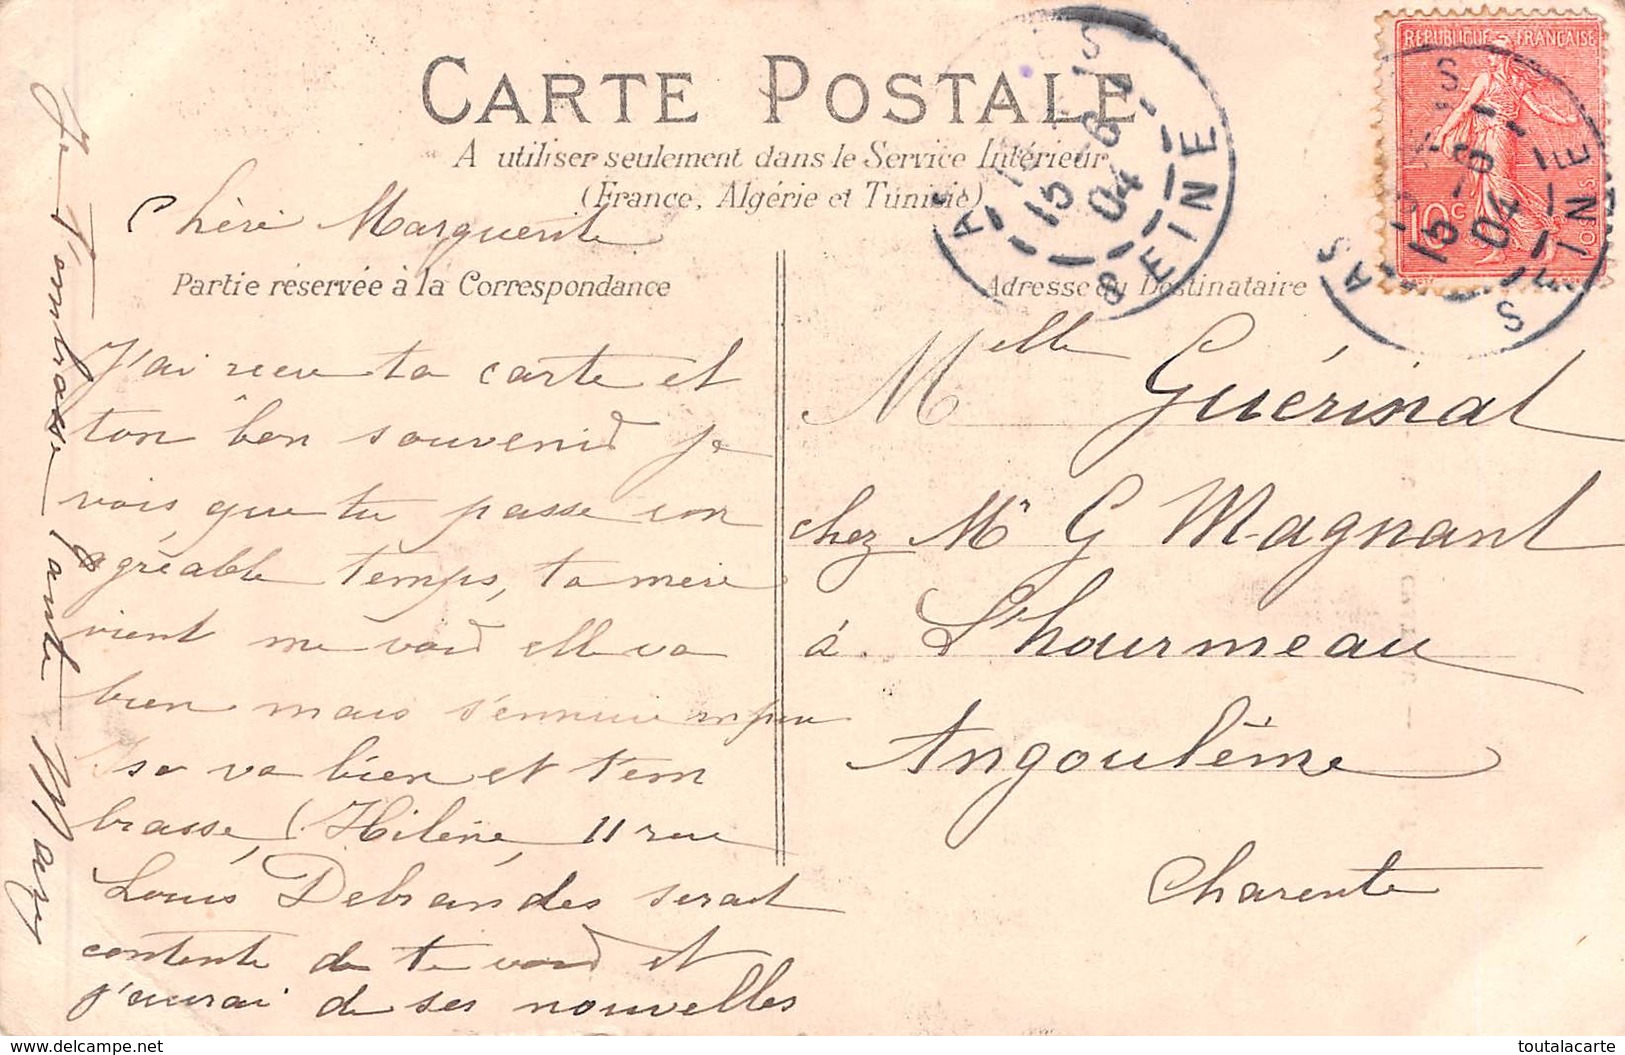 CARTE POSTALE
A utiliser seulement dans le Service Intérieur
(France, Algérie et Tunisie)
Chèri Marguerite
Partie réservée à la Correspondance
J'ai recu ta carte et
ton bon souvenir je
vois que tu passe ton
agréable temps, ta mere
vient me voir elle va
bien mais s'ennuie un peu
sa va bien et t'em
brasse, (Hilène, 11 rue
Louis Debrandes serait
contente de te voir et
j'aurai de ses nouvelles
Je t'embrasse tante Mary
Adresse du Destinataire
Melle Guérinat
chez Mr G Magnant
à L'houmeau
Angoulême
Charente
REPUBLIQUE FRANÇAISE
10c
POSTES
15 -6
04
SEINE
15 -6
04
SEINE
delcampe.net
toutalacarte